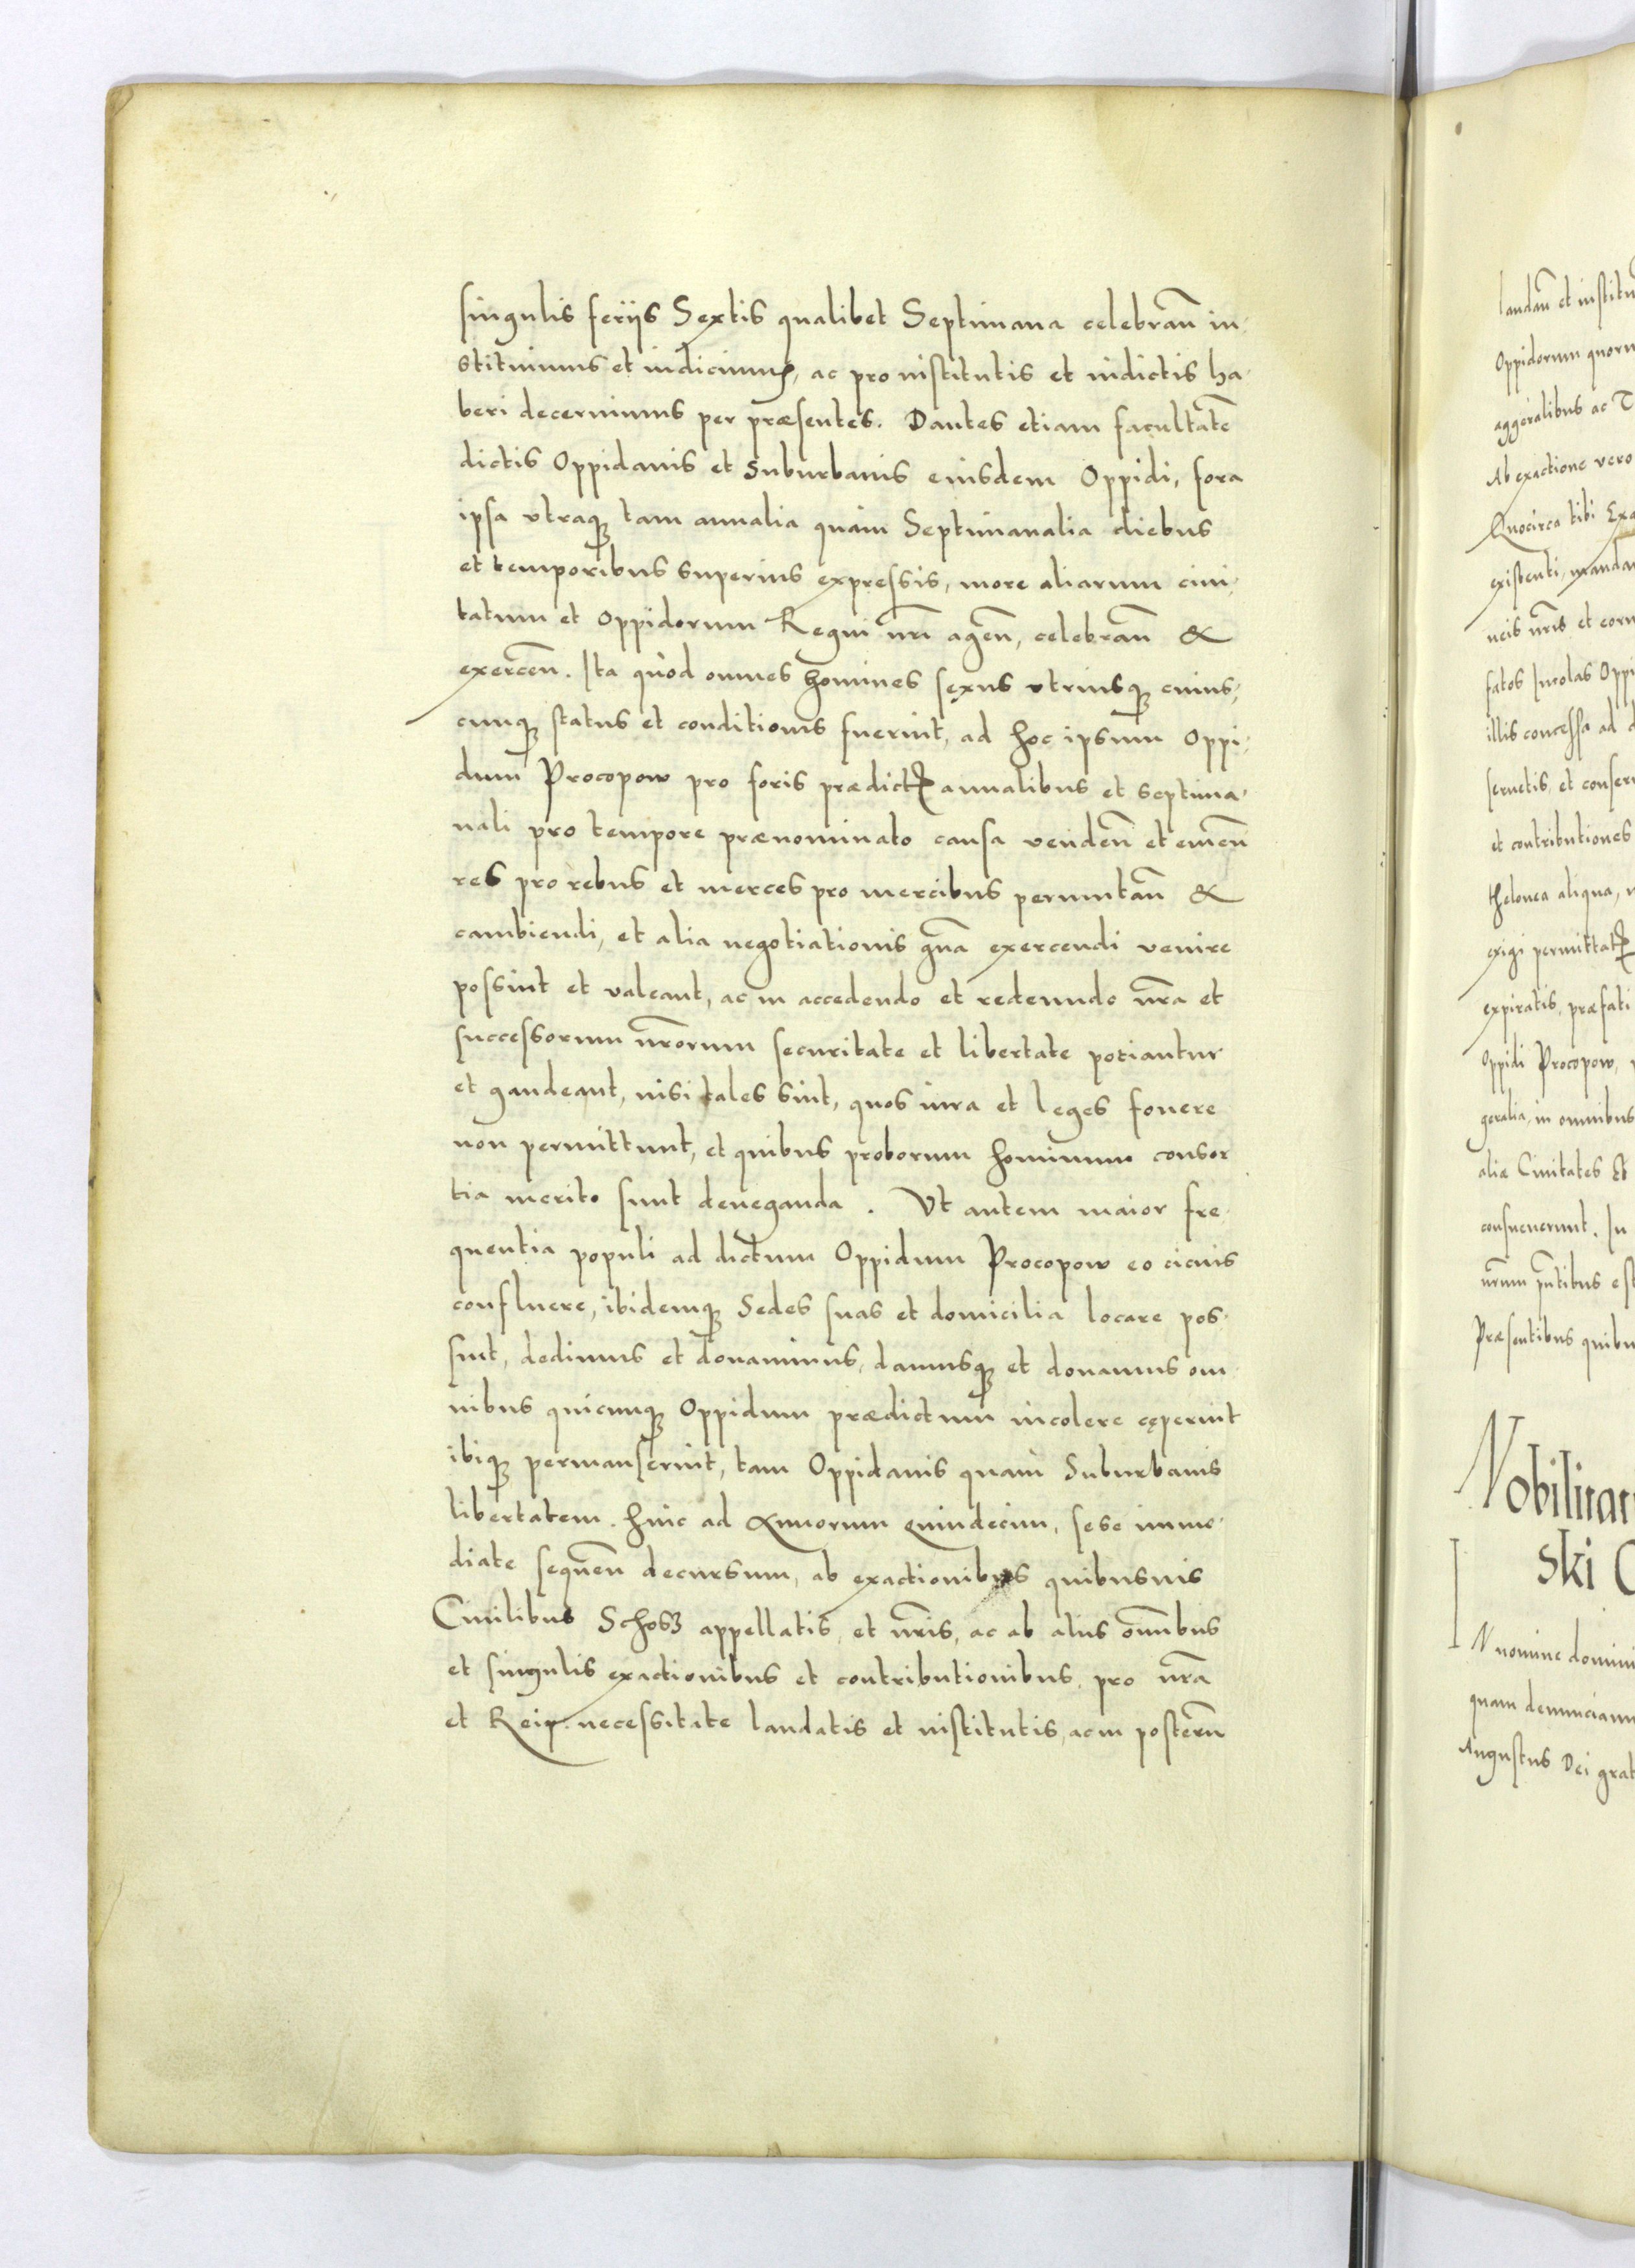 singulis feriis Sextis qualibet Septimana celebrañ in-
stituimus et indicimus, ac pro institutis et indictis ha-
beri decernimus per præsentes. Dantes etiam facultatē
dictis Oppidanis et Suburbanis eiusdem Oppidi, fora
ipsa vtraq; tam annalia quàm Septimanalia diebus
et temporibus superius expressis, more aliarum ciui-
tatum et Oppidorum Regni nr̃i ageñ, celebrañ &
exerceñ. Ita quòd omnes homines sęxus vtriusq; cuius-
cunq; status et conditionis fuerint, ad hoc ipsum Oppi-
dum Procopow pro foris prædictꝭ annalibus et septima-
nali pro tempore prænominato causa vendeñ et emeñ
res pro rebus et merces pro mercibus permutañ &
cambiendi, et alia negotiationis gña exercendi venire
possint et valeant, ac in accedendo et redeundo nr̃a et
successorum nr̃orum securitate et libertate potiantur
et gaudeant, nisi tales sint, quos iura et leges fouere
non permittunt, et quibus proborum hominum consor
tia merito sunt deneganda. Vt autem maior fre-
quentia populi ad dictum Oppidum Procopow eo cicius
confluere, ibidemq; Sedes suas et domicilia locare pos-
sint, dedimus et donauimus, damusq; et donamus om
nibus quicunq; Oppidum prædictum incolere cęperint
ibiq; permanserint, tam Oppidanis quàm Suburbanis
libertatem. hinc ad Annorum quindecim, sese imme-
diate sequeñ decursum, ab exactionibus quibusuis
Ciuilibus Schosz appellatis, et nr̃is, ac ab aliis om̃ibus
et singulis exactionibus et contributionibus, pro nr̃a
et Reip. necessitate laudatis et institutis, ac in posterũ
laudañ et institu
Oppidorum quoru
aggeralibus ac T
Ab exactione vero
Quocirca tibi Exa
existenti, mandan
neis nr̃is et coru
fatos Incolas Oppi
illis concessa ad d
seruetis, et conseru
et contributiones
thelonea aliqua,
exigi permittatꝭ
expiratis, præfati
Oppidi Procopow,
geralia, in omnibus
aliæ Ciuitates &
consueuerunt. In
nr̃um p̃ntibus est
Præsentibus quibu
Nobilitat
ski C
N nomine domini
quam denunciam
Augustus Dei grat